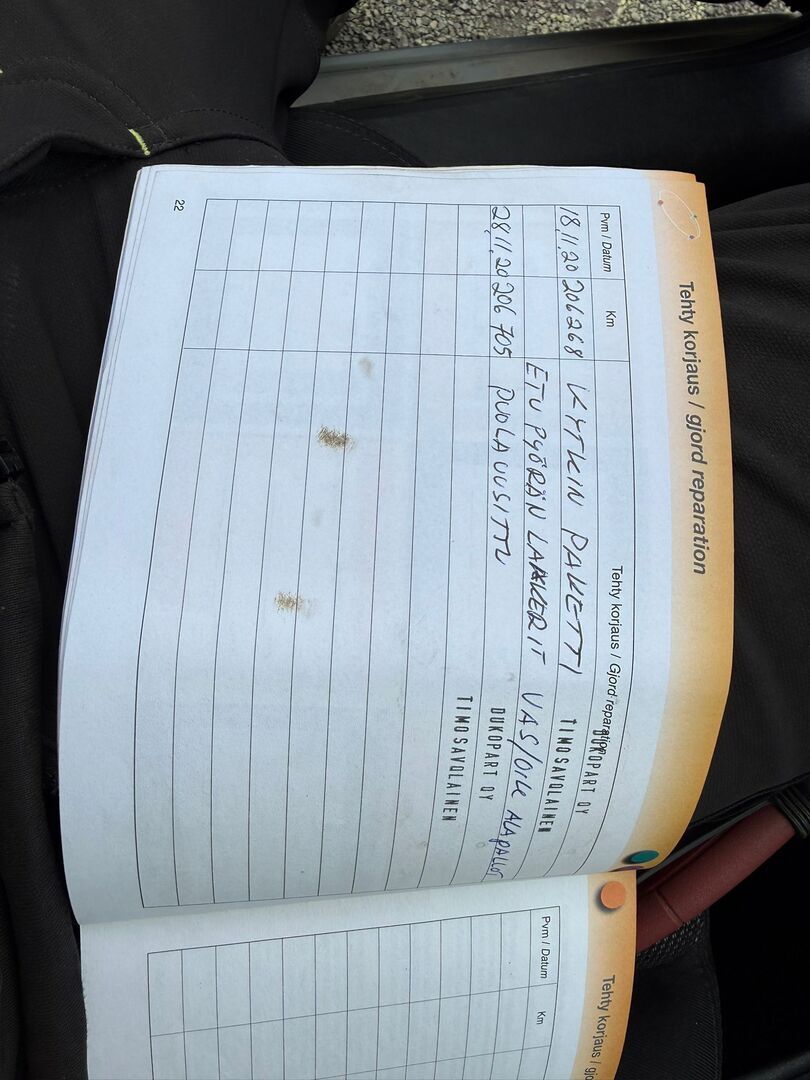 Tehty korjaus / gjord reparation
Pvm / Datum Km Tehty korjaus / Gjord reparation
DUKOPART OY
18.11.20 206268 KYTKIN PAKETTI TIMO SAVOLAINEN
ETU PYÖRÄN LAAKERIT VAS/OIK ALAPALLOT
28.11.20 206705 PUOLA UUSITTU DUKOPART OY
TIMO SAVOLAINEN
22
Tehty korjaus / gjo
Pvm / Datum Km